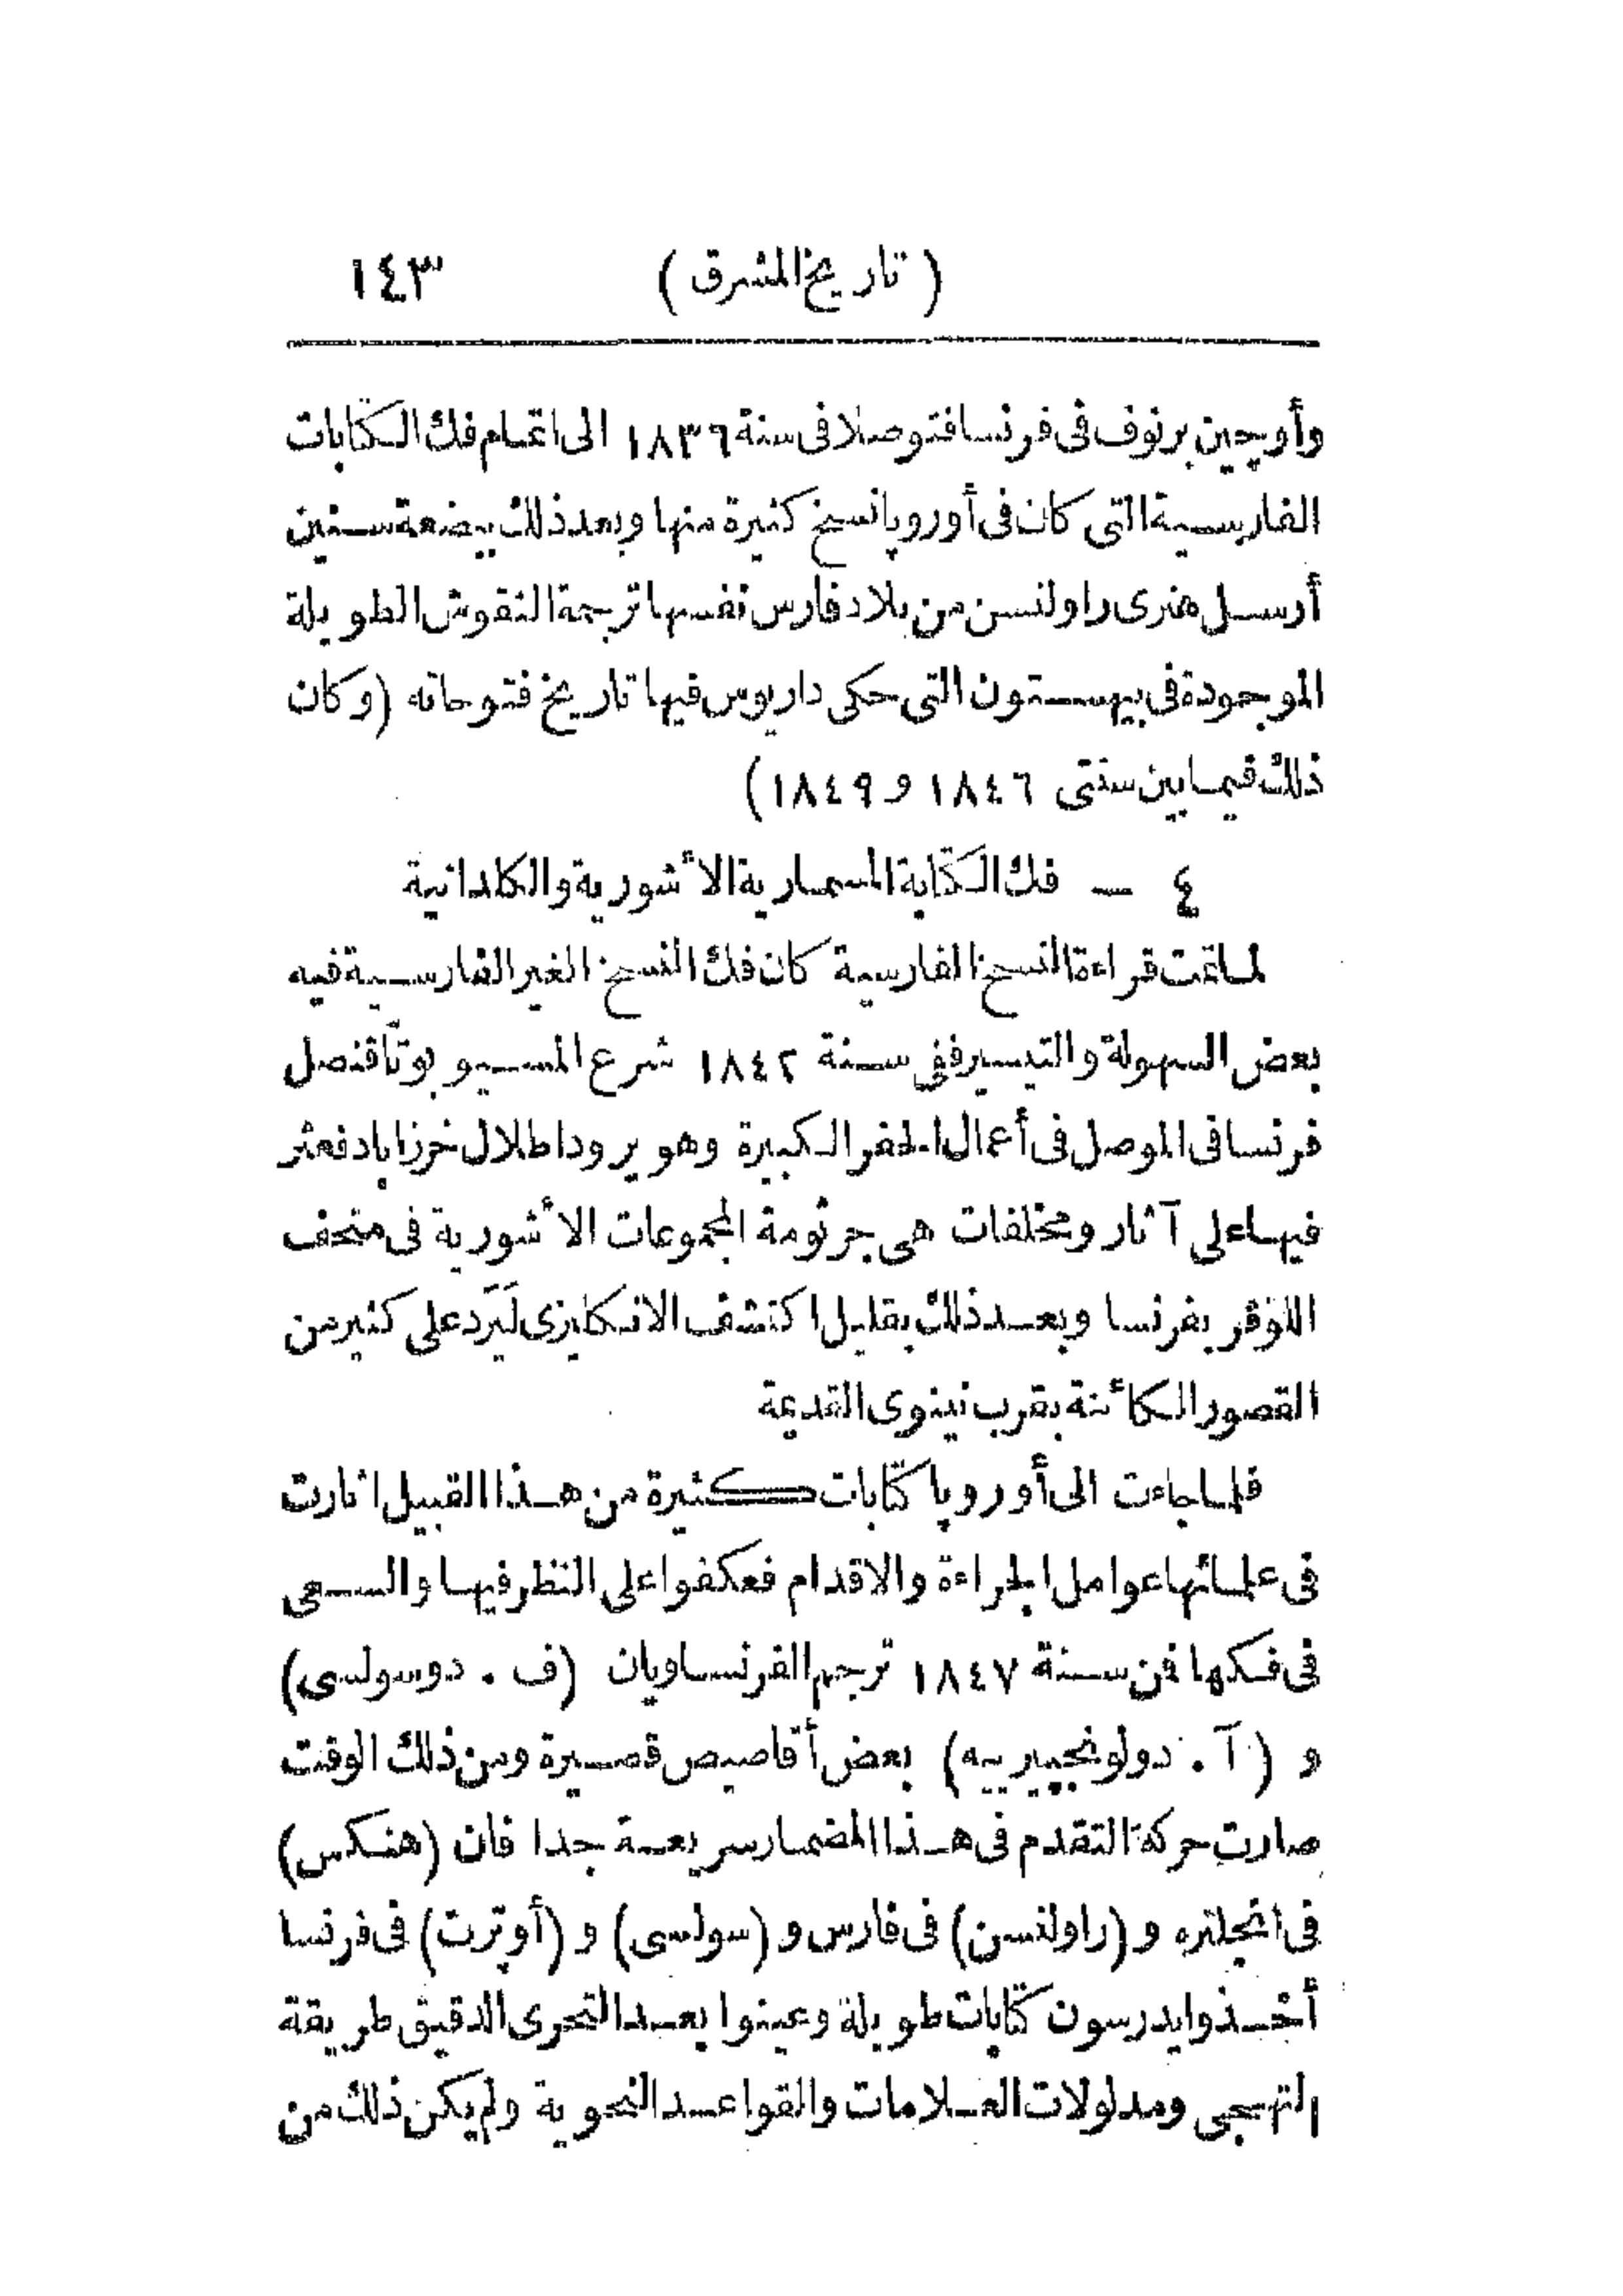 ( تاريخ المشرق ) ١٤٣
وأوجين برنوف فى فرنسا فتوصلا فى سنة ١٨٣٩ الى اتمام فك الكتابات
الفارسية التى كان فى أوروپا نسخ كثيرة منها وبعد ذلك ببضعة سنين
أرسل هنرى راولنسن من بلاد فارس نفسها ترجمة النقوش الطويلة
الموجودة فى بيهستون التى حكى داريوس فيها تاريخ فتوحاته (وكان
ذلك فيما بين سنتى ١٨٤٦ و ١٨٤٩)
٤ — فك الكتابة المسمارية الأشورية والكلدانية
لما تمت قراءة النسخ الفارسية كان فك النسخ الغير الفارسية فيه
بعض السهولة والتيسير ففى سنة ١٨٤٢ شرع المسيو بوتّا قنصل
فرنسا فى الموصل فى أعمال الحفر الكبيرة وهو يرود اطلال خرزاباد فعثر
فيها على آثار ومخلفات هى جرثومة المجموعات الأشورية فى متحف
اللوڤر بفرنسا وبعد ذلك بقليل اكتشف الانكليزى لَيَرد على كثير من
القصور الكائنة بقرب نينوى القديمة
فلما جاءت الى أوروپا كتابات كثيرة من هذا القبيل اثارت
فى علمائها عوامل الجراءة والاقدام فعكفوا على النظر فيها والسعى
فى فكها فمن سنة ١٨٤٧ ترجم الفرنساويان (ف . دوسولسى)
و (آ . دولونجپيرييه) بعض أقاصيص قصيرة ومن ذلك الوقت
صارت حركة التقدم فى هذا المضمار سريعة جدا فان (هنكس)
فى انجلتره و (راولنسن) فى فارس و (سولسى) و (أوپرت) فى فرنسا
أخذوا يدرسون كتابات طويلة وعينوا بعد التحرى الدقيق طريقة
التهجى ومدلولات العلامات والقواعد النحوية ولم يكن ذلك من